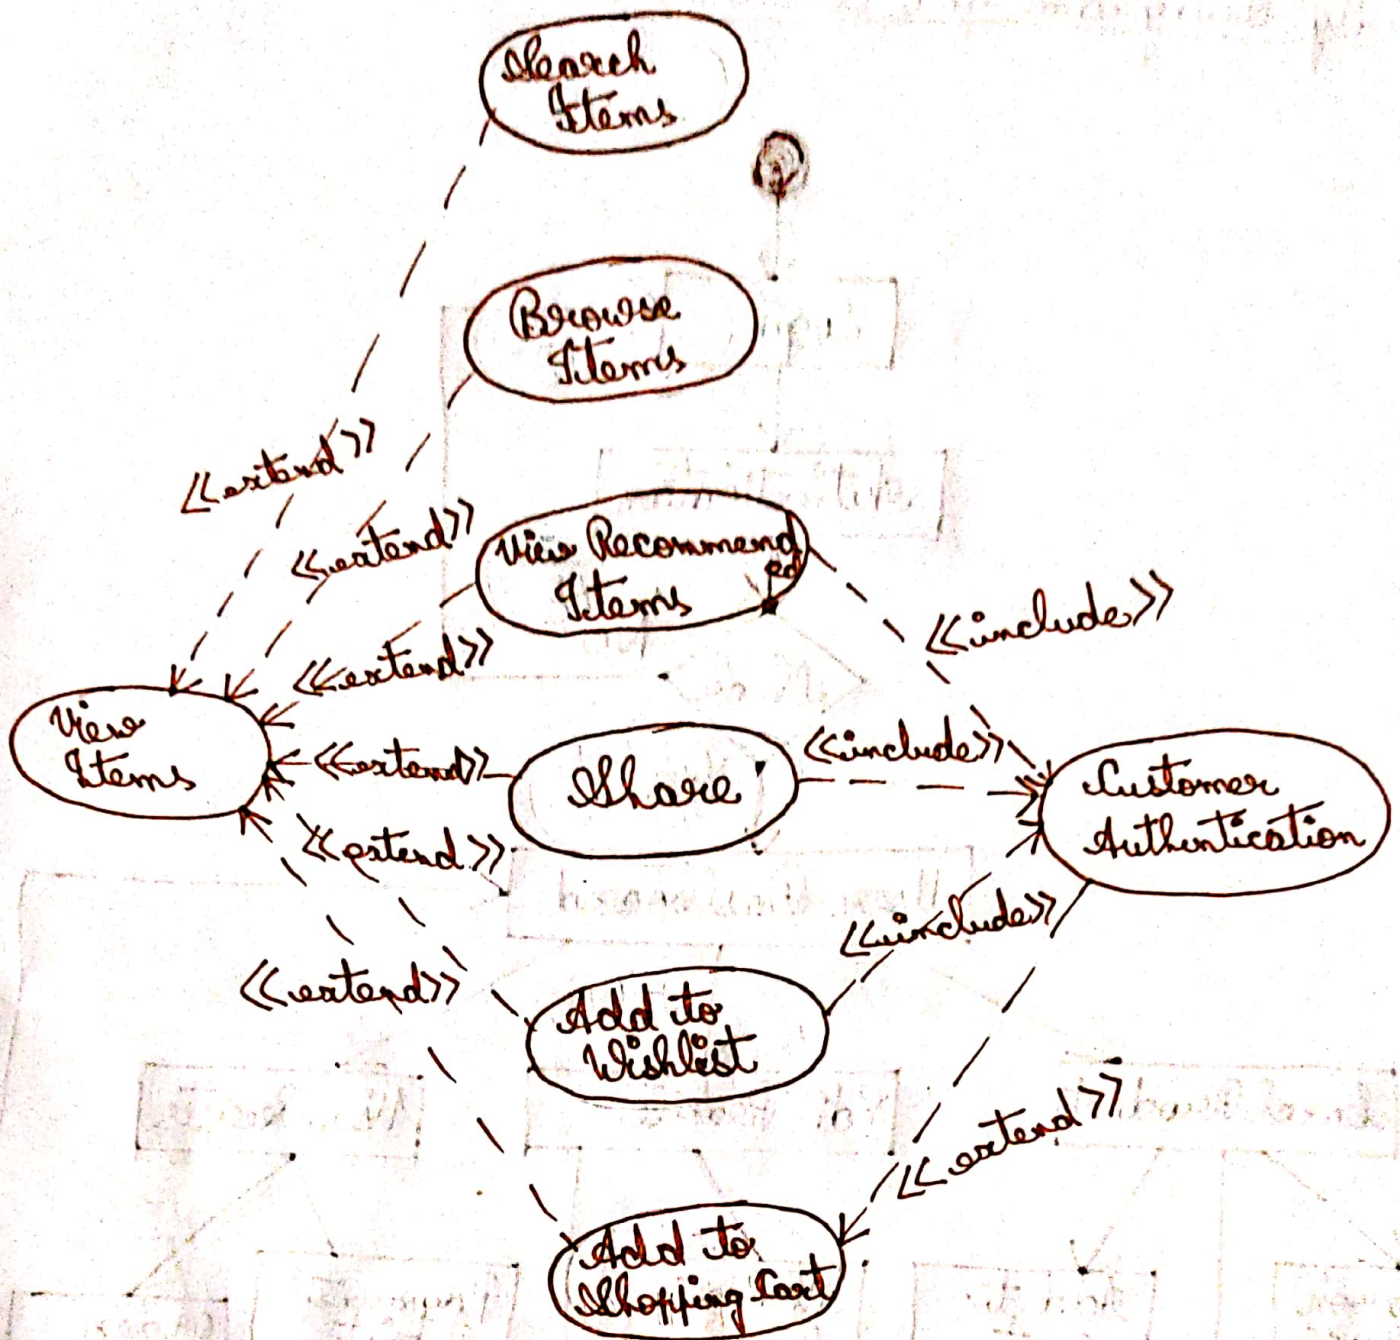 Search
Items
Browse
Items
<<extend>>
<<extend>>
View Recommend
ed
Items
<<include>>
<<extend>>
View
Items
<<extend>>
Share
<<include>>
Customer
Authentication
<<extend>>
<<include>>
<<extend>>
Add to
Wishlist
<<extend>>
Add to
Shopping Cart